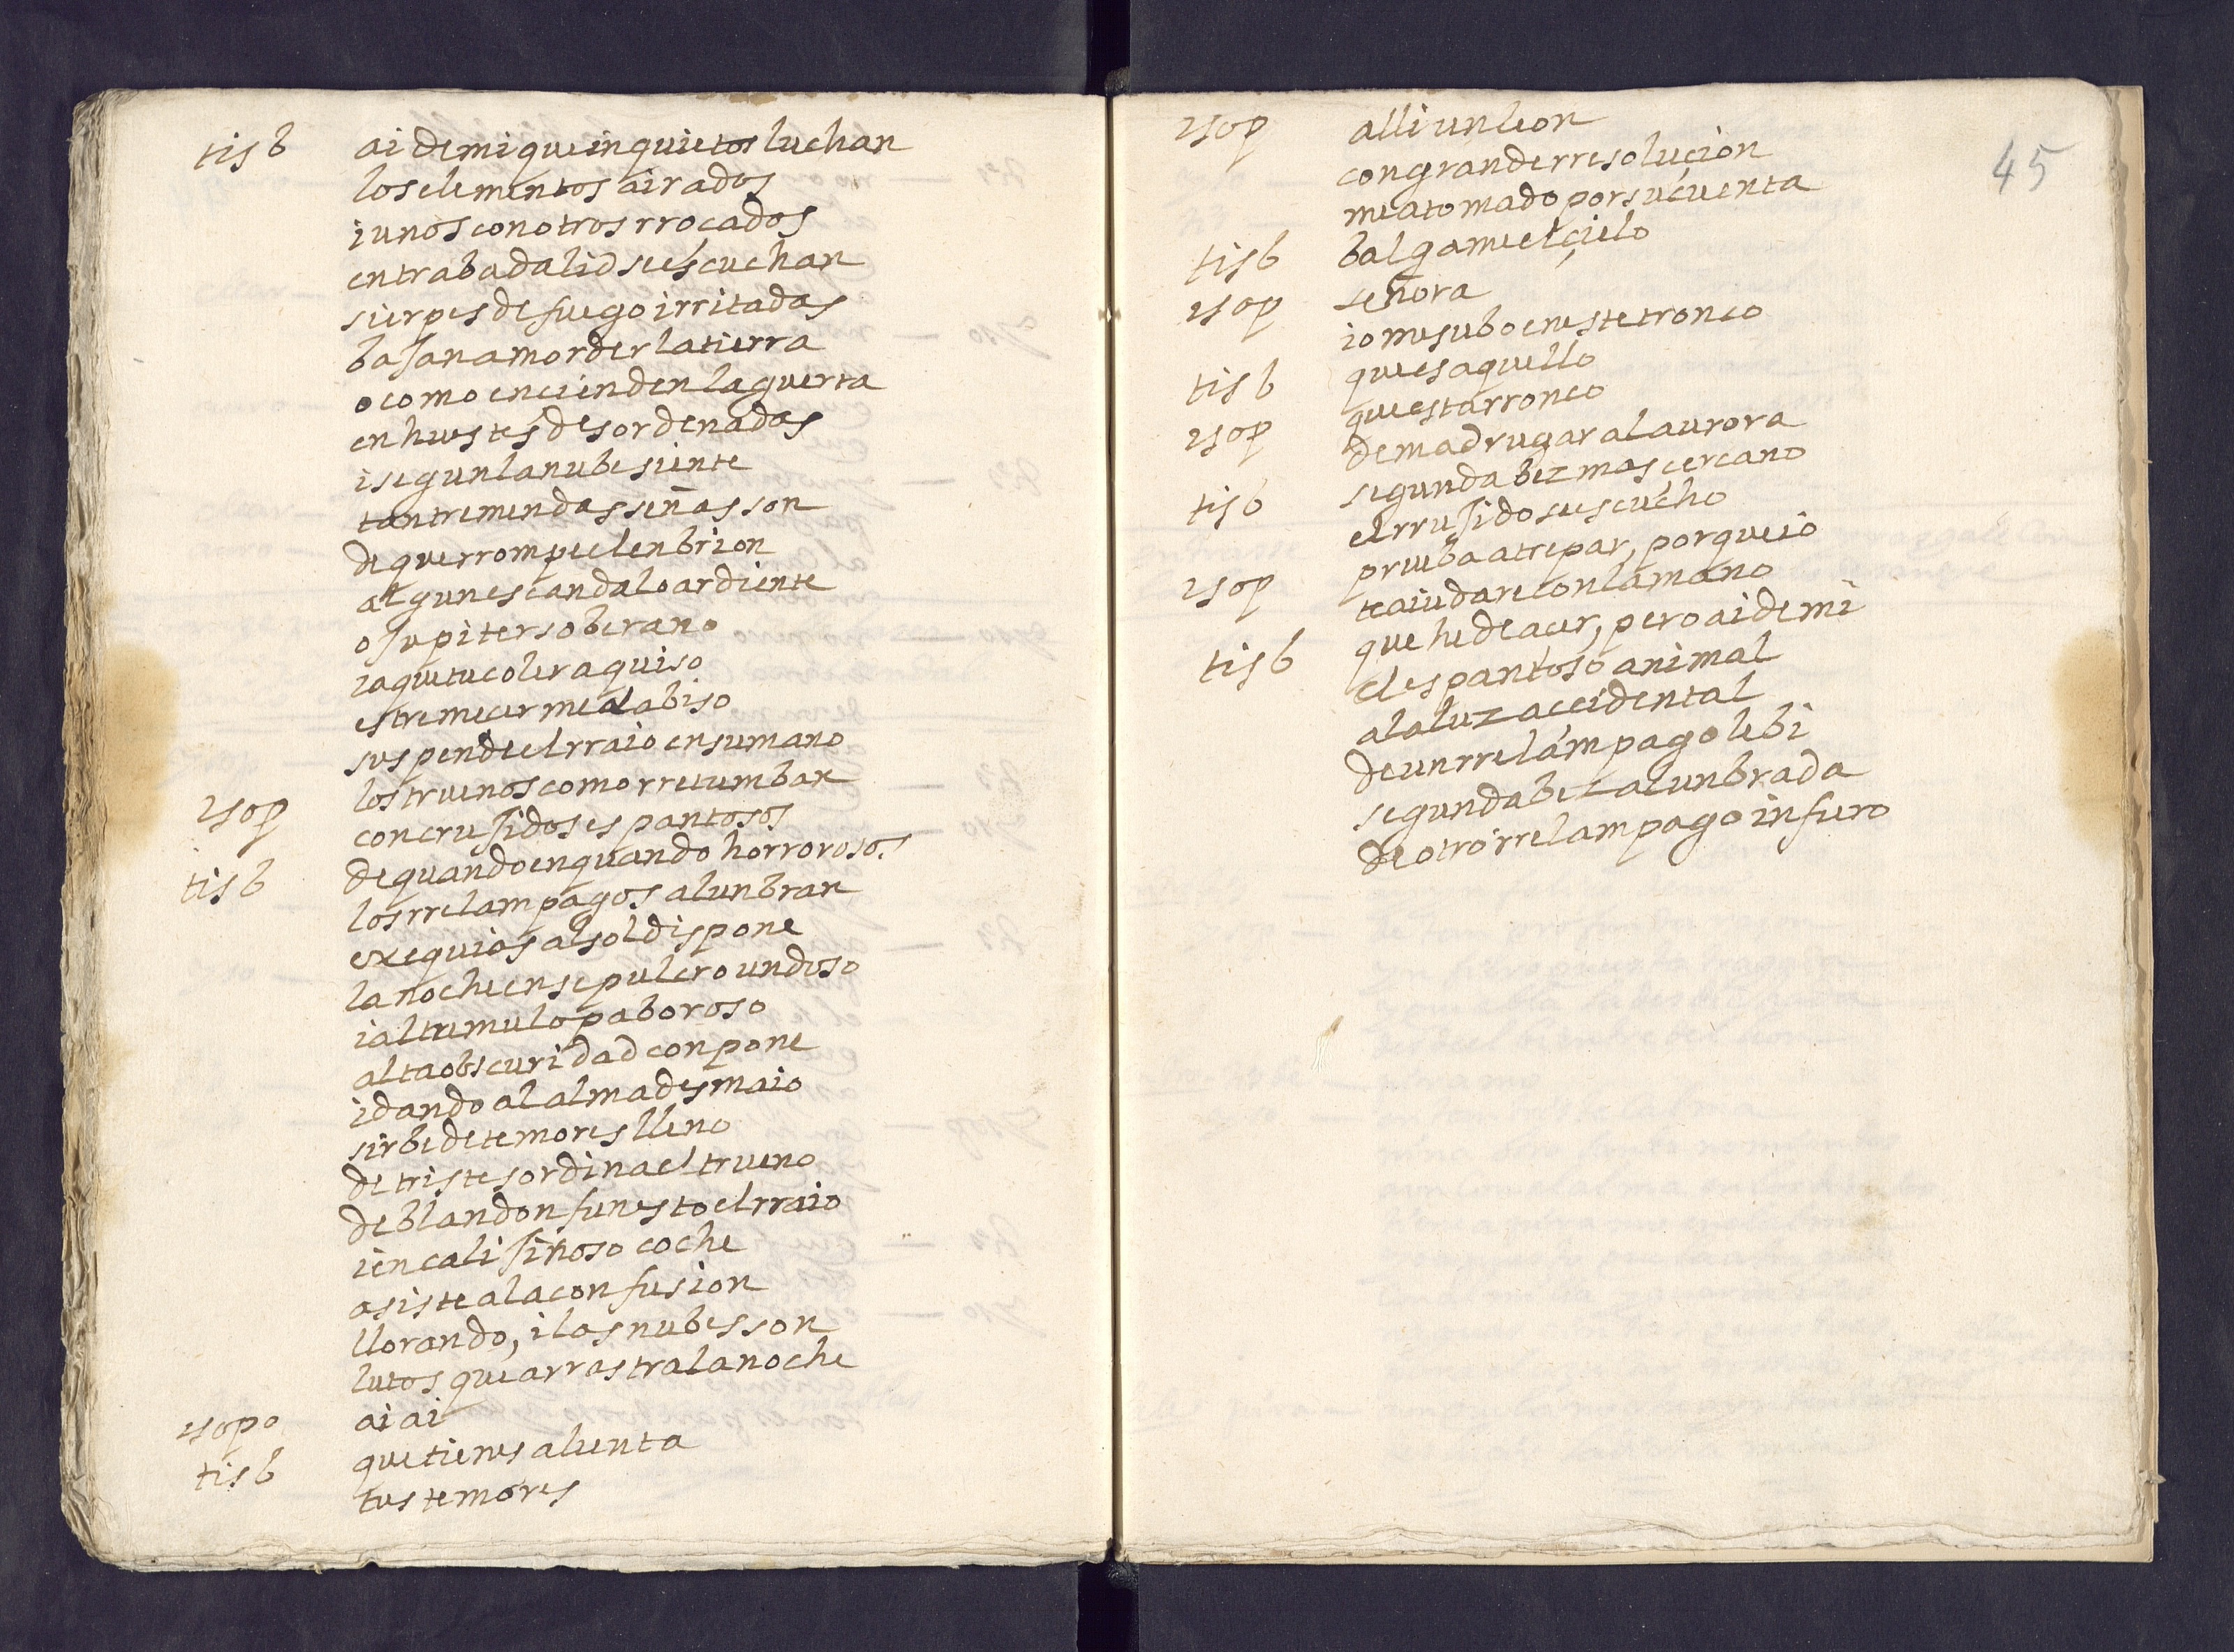 tisb ai de mi que inquietos luchan
los elementos airados
i unos con otros rrocados
en trabada lid se escuchan
sierpes de fuego irritadas
bajan a morder la tierra
o como encienden la guerra
en huestes desordenadas
i segun la nube siente
tan tremendas señas son
de que rrompe el enbrion
algun escandalo ardiente
o jupiter soberano
ia que tu colera quiso
estremecerme al abiso
suspende el rraio en su mano
isop los truenos como rretumban
con crujidos espantosos
tisb de quando en quando horrorosos
los rrelampagos alunbran
exequias al sol dispone
la noche en sepulcro undoso
i al tumulo paboroso
alta obscuridad conpone
i dando al alma desmaio
sirbe de temores lleno
de triste sordina el trueno
de blandon funesto el rraio
i en calijinoso coche
asiste a la confusion
llorando, i las nubes son
lutos que arrastra la noche
isopo ai ai
tisb que tienes alienta
tus temores
45
isop alli un leon
con grande rresoluçion
me a tomado por su cuenta
tisb balgame el çielo
isop señora
io me subo en este tronco
tisb que es aquello
isop que esta rronco
de madrugar al aurora
tisb segunda bez mas cercano
el rrujido se escucho
isop prueba a trepar, porque io
te aiudare con la mano
tisb que he de acer, pero ai de mi
el espantoso animal
a la luz accidental
de un rrelampago le bi
segunda bez alunbrada
de otro rrelampago infiero